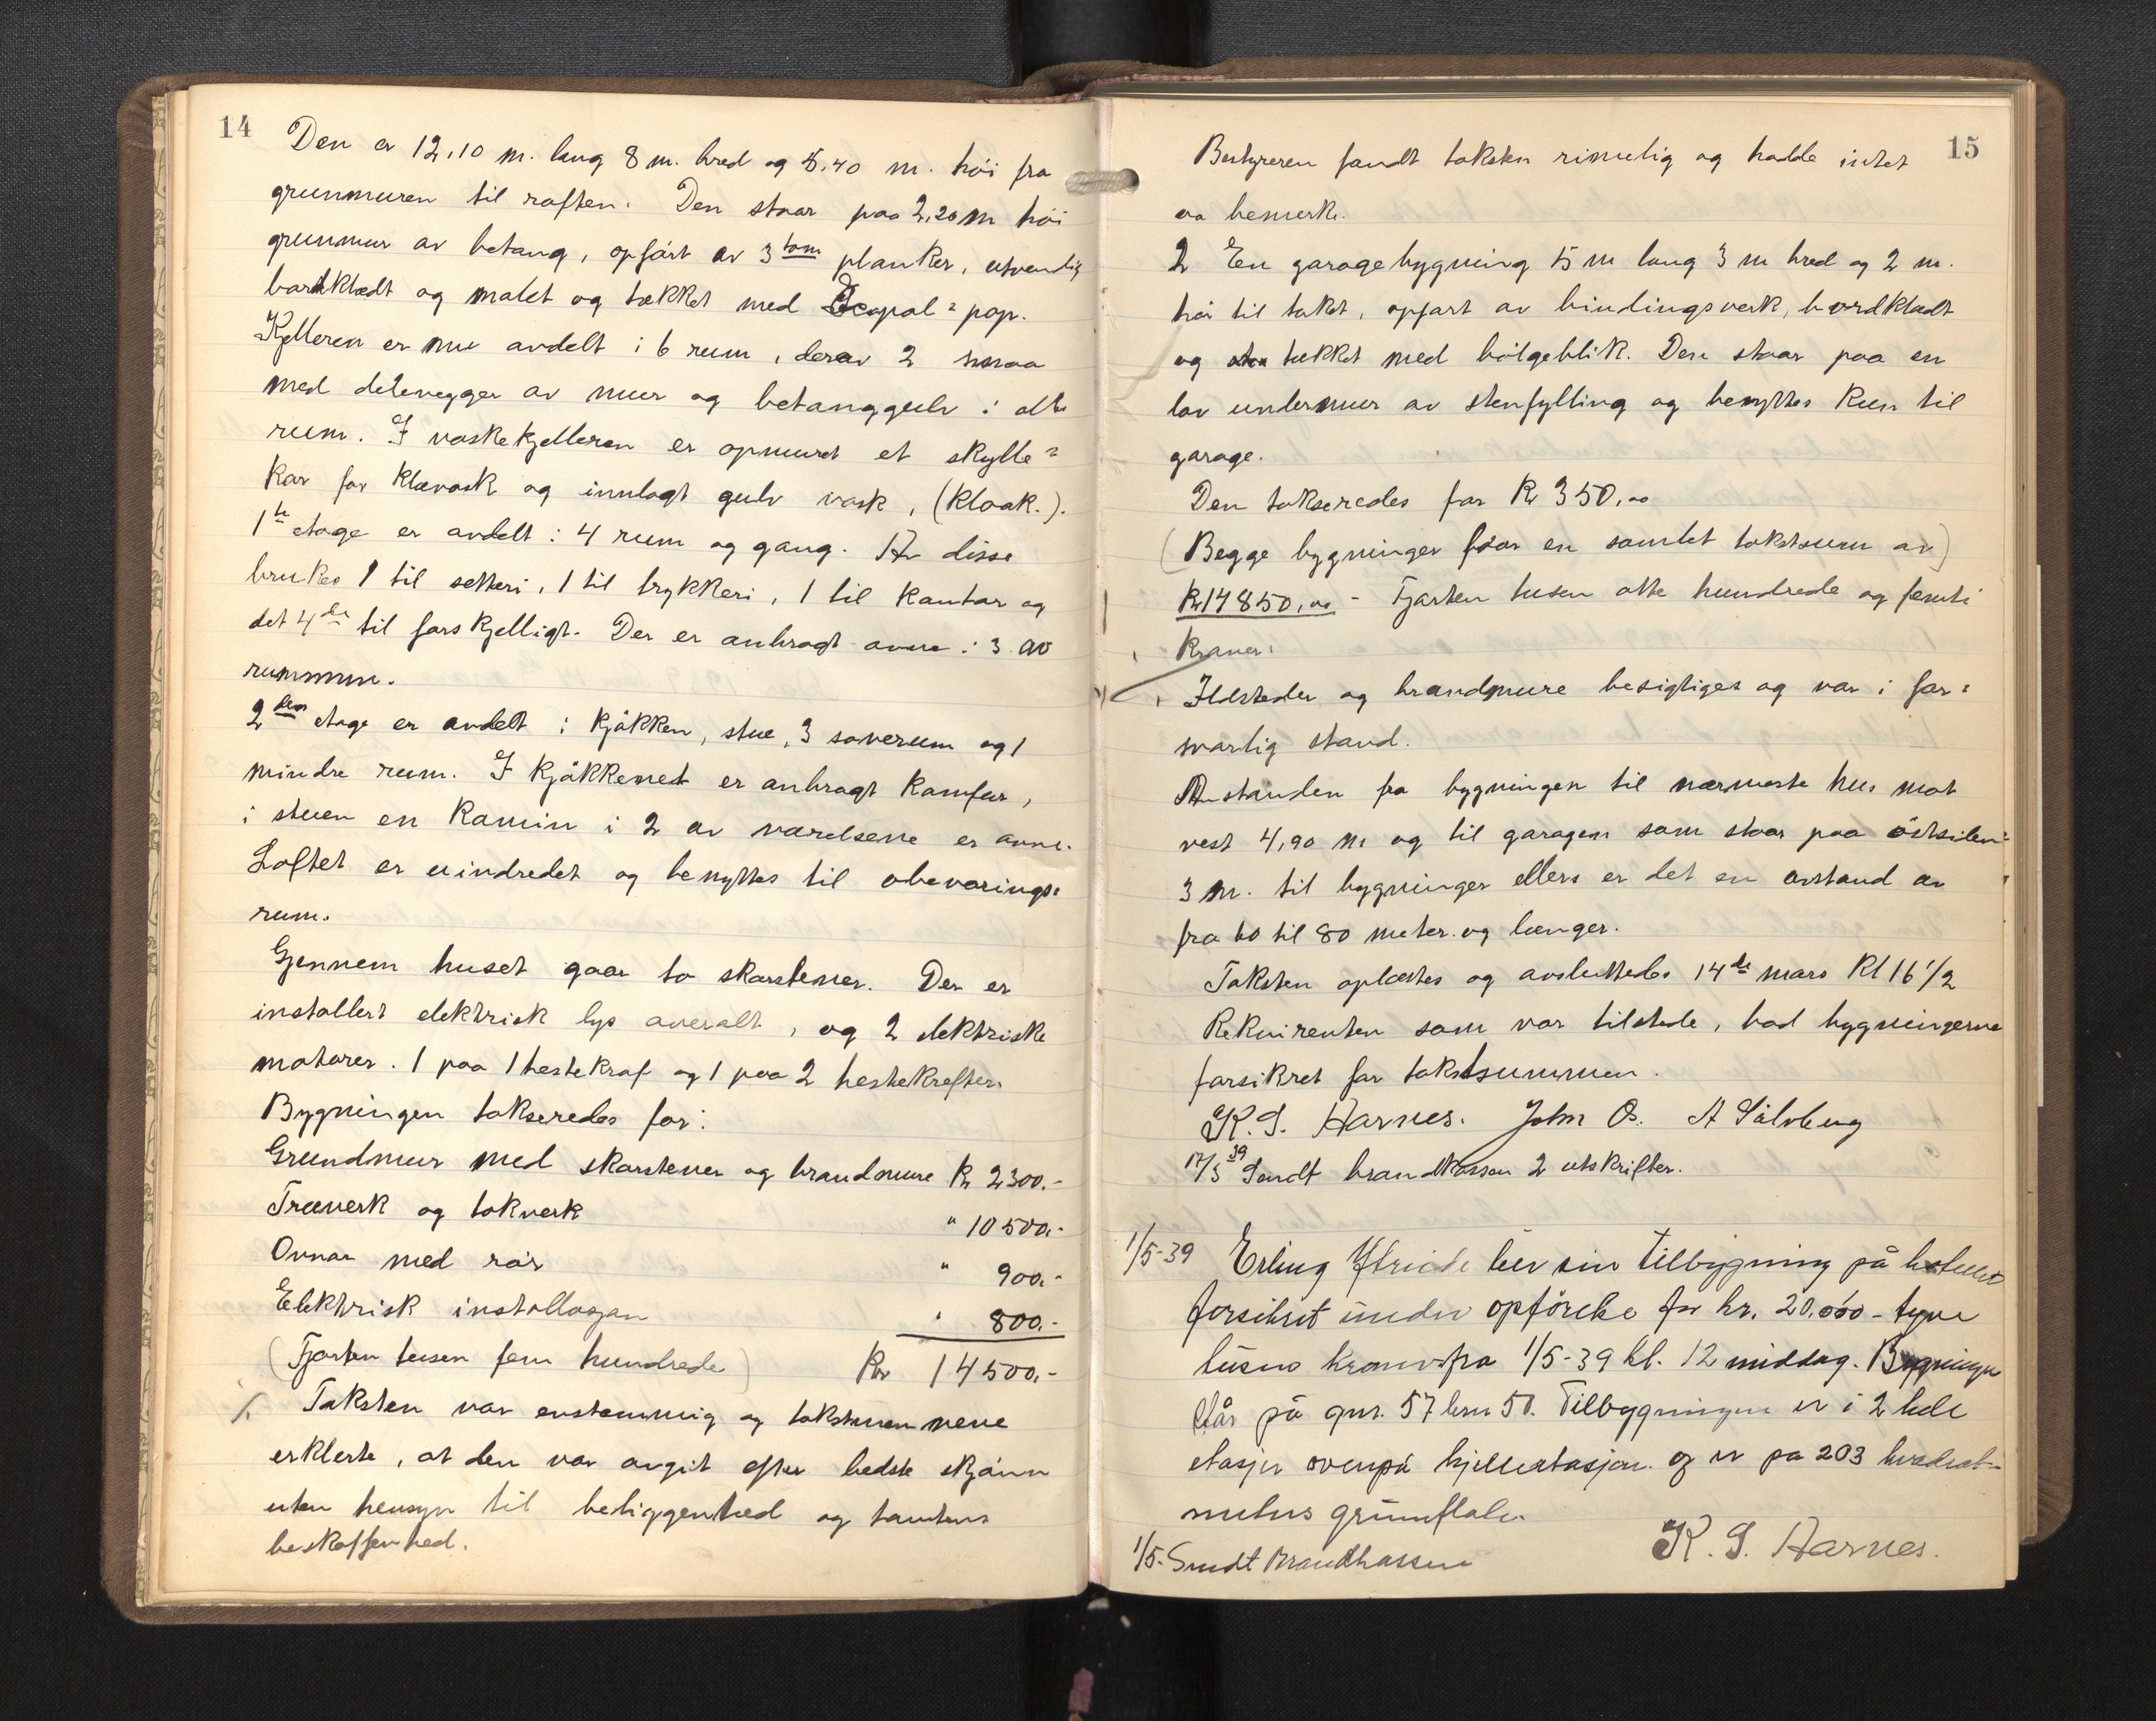 14
Den er 12,10 m. lang 8 m. bred og 5,40 m. höi fra
grunmuren til raften. Den staar paa 2,20 m höi
grunmur av betang, opfört av 3 tom planker, utvendig
bordklædt og malet og tækket med Icopal = pap.
Kjelleren er nu avdelt i 6 rum, derav 2 smaa
med delevegger av mur og betanggulv i alle
rum. I vaskekjelleren er opmuret et skylle=
kar for klævask og innlagt gulv vask, (kloak.).
1te etage er avdelt i 4 rum og gang. Av disse
brukes 1 til setteri, 1 til trykkeri, 1 til kantor og
det 4de til forskjelligt. Der er anbragt avne i 3 av
rummene.
2den etage er avdelt i kjökken, stue, 3 soverum og 1
mindre rum. I kjökkenet er anbragt kamfur,
i stuen en kamin i 2 av værelsene er avne.
Loftet er uindredet og benyttes til obevarings=
rum.
Gjennem huset gaar to skarstener. Der er
installert elektrisk lys averalt, og 2 elektriske
motorer. 1 paa 1 hestekraf og 1 paa 2 hestekrefter.
Bygningen takseredes for:
Grundmur med skarstener og brandmure Kr 2300.-
Træverk og takverk " 10500.-
Ovnar med rör " 900.-
Elektrisk installasjon " 800.-
(Fjorten tusen fem hundrede) Kr 14500.-
Taksten var enstemmig og takstmennene
erklerte, at den var avgit efter bedste skjönn
uten hensyn til beliggenhed og tomtens
beskaffenhed.
15
Bestyreren fandt taksten rimelig og hadde intet
aa bemerke.
2 En garagebygning 5 m lang 3 m bred og 2 m.
höi til taket, opfört av bindingsverk, bordklædt
og tækket med bölgeblik. Den staar paa en
lav undermur av stenfylling og benyttes kun til
garage.
Den takseredes for Kr 350,00
(Begge bygninger faar en samlet takstsum av)
Kr 14850,00 - Fjorten tusen otte hundrede og femti
Kroner.
Ildsteder og brandmure besigtiges og var i for=
svarlig stand.
Avstanden fra bygningen til nærmeste hus mot
vest 4,90 m og til garagen som staar paa östsiden
3 m. til bygninger ellers er det en avstand av
fra 60 til 80 meter og længer.
Taksten oplæstes og avsluttedes 14de mars Kl 16 1/2
Rekvirenten som var tilstede, bad bygningerne
forsikret for takstsummen.
K. S. Harnes. John Os. A Sålvberg
17/3 39 Sendt brandkassen 2 utskrifter.
1/5-39 Erling blev sin tilbygning på hotellet
forsikret under opförelse for kr. 20.000 - tyve
tusen kroner fra 1/5-39 kl. 12 middag. Bygningen
står på gnr. 57 brn 50. Tilbygningen er i 2 hele
etasjer ovenpå kjelleretasjen og er på 203 kvadrat-
meters grunnflate.
K. S. Harnes.
1/5. Sendt Brandkassen